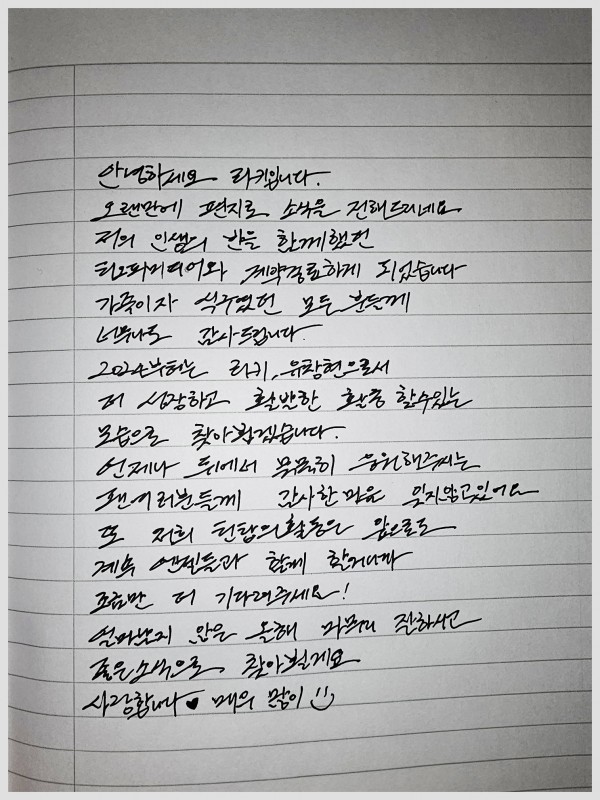 안녕하세요 리키입니다.
오랜만에 편지로 소식을 전해드리네요
저의 인생의 반을 함께했던
티오피미디어와 계약종료하게 되었습니다
가족이자 식구였던 모든 분들께
너무나도 감사드립니다.
2024부터는 리키, 유창현으로서
더 성장하고 활발한 활동 할수있는
모습으로 찾아뵙겠습니다.
언제나 뒤에서 묵묵히 응원해주시는
팬여러분들께 감사한마음 잊지않고있어요
또 저희 틴탑의활동은 앞으로도
계속 엔젤들과 함께 할거니까
조금만 더 기다려주세요!
얼마남지 않은 올해 마무리 잘하시고
좋은소식으로 찾아뵐게요
사랑합니다♥ 매우 많이